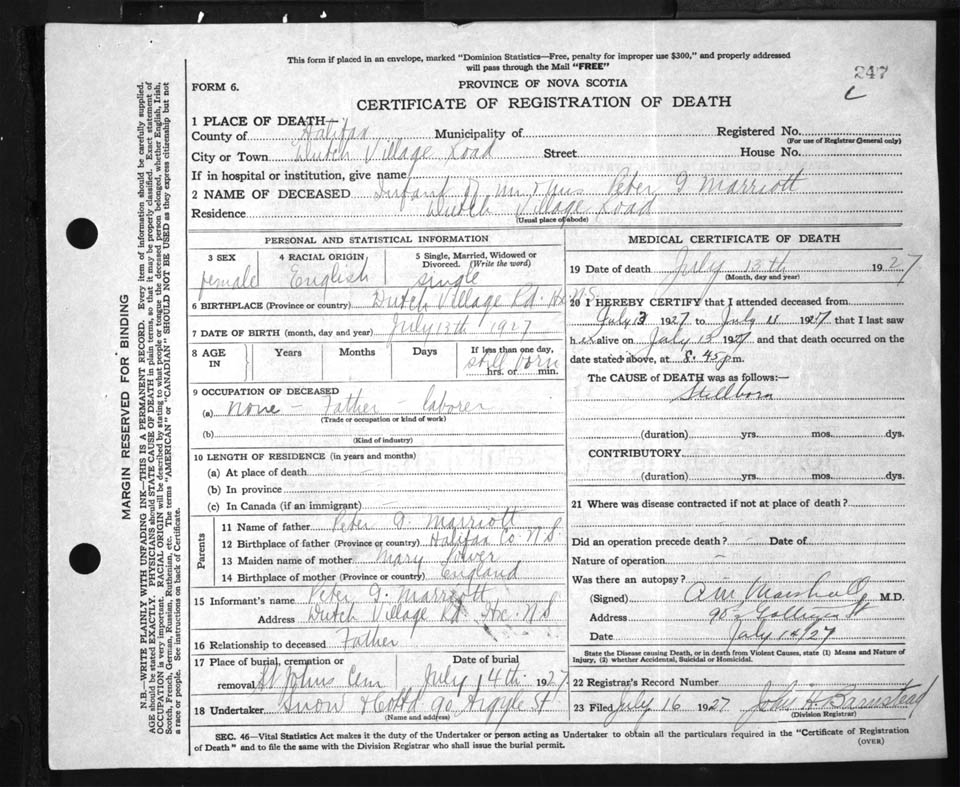 This form if placed in an envelope, marked "Dominion Statistics—Free, penalty for improper use $300," and properly addressed
will pass through the Mail "FREE"
247
FORM 6.
PROVINCE OF NOVA SCOTIA
CERTIFICATE OF REGISTRATION OF DEATH
1 PLACE OF DEATH—
County of Halifax Municipality of Registered No.
(For use of Registrar General only)
City or Town Dutch Village Road Street House No.
If in hospital or institution, give name
2 NAME OF DECEASED Infant of Mr & Mrs Peter J Marriott
Residence Dutch Village Road
(Usual place of abode)
PERSONAL AND STATISTICAL INFORMATION
3 SEX 4 RACIAL ORIGIN 5 Single, Married, Widowed or Divorced. (Write the word)
female English Single
6 BIRTHPLACE (Province or country) Dutch Village Rd. Hx N.S.
7 DATE OF BIRTH (month, day and year) July 13th 1927
8 AGE IN Years Months Days If less than one day,
still born
hrs. or min.
9 OCCUPATION OF DECEASED
(a) None - Father - laborer
(Trade or occupation or kind of work)
(b)
(Kind of industry)
10 LENGTH OF RESIDENCE (in years and months)
(a) At place of death
(b) In province
(c) In Canada (if an immigrant)
Parents
11 Name of father Peter J Marriott
12 Birthplace of father (Province or country) Halifax Co. N.S.
13 Maiden name of mother Mary
14 Birthplace of mother (Province or country) England
15 Informant's name Peter J. Marriott
Address Dutch Village Rd Hx. N S
16 Relationship to deceased Father
17 Place of burial, cremation or Date of burial
removal St Johns Cem July 14th 1927
18 Undertaker Snow & Co Ltd 90 Argyle St
(Name and address)
MEDICAL CERTIFICATE OF DEATH
19 Date of death July 13th 1927
(Month, day and year)
20 I HEREBY CERTIFY that I attended deceased from
July 13 1927 to July 1927 that I last saw
h er alive on July 13 1927 and that death occurred on the
date stated above, at 8.45 p m.
The CAUSE of DEATH was as follows:—
Stillborn
(duration) yrs. mos. dys.
CONTRIBUTORY
(duration) yrs. mos. dys.
21 Where was disease contracted if not at place of death?
Did an operation precede death? Date of
Nature of operation
Was there an autopsy?
(Signed) Marshall M.D.
Address St
Date July 14/27
State the Disease causing Death, or in death from Violent Causes, state (1) Means and Nature of
Injury, (2) whether Accidental, Suicidal or Homicidal.
22 Registrar's Record Number
23 Filed July 16 1927 John H Barnstead
(Division Registrar)
SEC. 46—Vital Statistics Act makes it the duty of the Undertaker or person acting as Undertaker to obtain all the particulars required in the "Certificate of Registration
of Death" and to file the same with the Division Registrar who shall issue the burial permit.
(OVER)
MARGIN RESERVED FOR BINDING
N.B.—WRITE PLAINLY WITH UNFADING INK—THIS IS A PERMANENT RECORD. Every item of information should be carefully supplied.
AGE should be stated EXACTLY. PHYSICIANS should STATE CAUSE OF DEATH in plain terms, so that it may be properly classified. Exact statement of
OCCUPATION is very important. RACIAL ORIGIN will be described by stating to what people or tongue the deceased person belonged, whether English, Irish,
Scotch, French, German, Russian, Ruthenian, etc. The terms "AMERICAN" or "CANADIAN" SHOULD NOT BE USED as they express citizenship but not
a race or people. See instructions on back of Certificate.